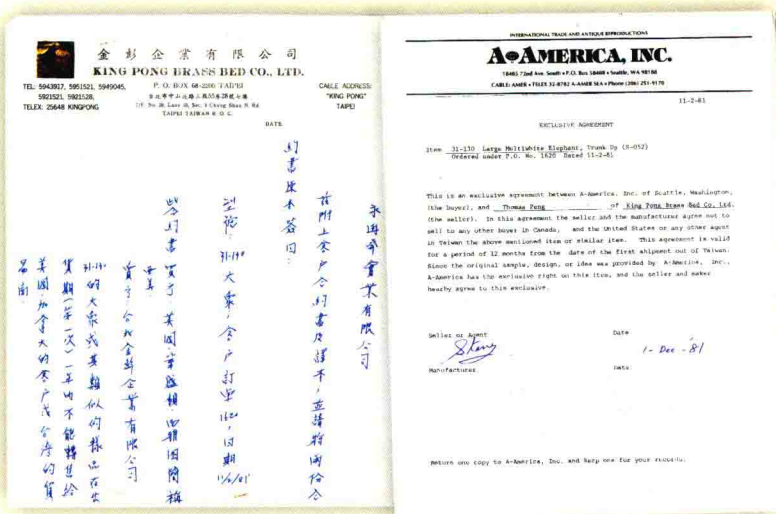 金彭企業有限公司
KING PONG BRASS BED CO., LTD.
TEL: 5943917, 5951521, 5949045,
5921521, 5921528,
TELEX: 25648 KINGPONG
P. O. BOX 68-2200 TAIPEI
台北市中山北路三段55巷28號七樓
7/F No 28, Lane 55, Sec. 3 Chung Shan N. Rd
TAIPEI TAIWAN R. O. C.
CABLE ADDRESS:
"KING PONG"
TAIPEI
DATE
企業有限公司
茲附上客户合約書及譯本,並請將兩份合
約書原本簽回:
型號: 31-130 大象,客户訂單1620,日期11/2/81
合約書 買方 美國 華盛頓
賣方 金彭企業有限公司
31-130的大象或其類似的樣品在出
貨期(第一次)一年內不能轉售給
美國、加拿大的客户或台灣的貿
易商
INTERNATIONAL TRADE AND ANTIQUE REPRODUCTIONS
A•AMERICA, INC.
18465 72nd Ave. South • P.O. Box 58468 • Seattle, WA 98188
CABLE: AMER • TELEX 32-8782 A-AMER SEA • Phone (206) 251-9170
11-2-81
EXCLUSIVE AGREEMENT
Item 31-130 Large Multiwhite Elephant, Trunk Up (N-052)
Ordered under P.O. No. 1620 Dated 11-2-81
This is an exclusive agreement between A-America, Inc. of Seattle, Washington,
(the buyer), and Thomas Peng of King Pong Brass Bed Co. Ltd.
(the seller). In this agreement the seller and the manufacturer agree not to
sell to any other buyer in Canada, and the United States or any other agent
in Taiwan the above mentioned item or similar item. This agreement is valid
for a period of 12 months from the date of the first shipment out of Taiwan.
Since the original sample, design, or idea was provided by A-America, Inc.,
A-America has the exclusive right on this item, and the seller and maker
hearby agree to this exclusive.
Seller or Agent
Date
1 - Dec - 81
Manufacturer
Date
Return one copy to A-America, Inc. and keep one for your records.